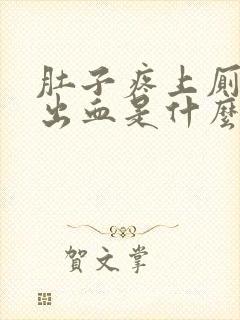 肚子疼上厕
出血是什麼
賀文掌